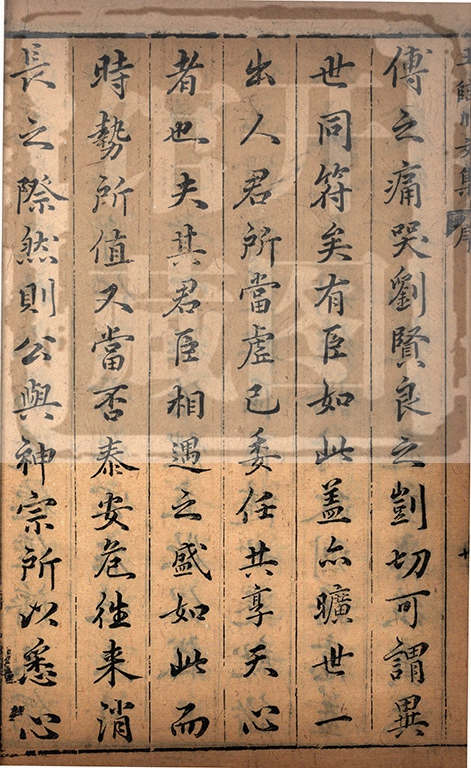 傅之痛哭劉賢良之剴切可謂異
世同符矣有臣如此盖亦曠世一
出人君所當虛己委任共享天心
者也夫其君臣相遇之盛如此而
時勢所值又當否泰安危徃来消
長之際然則公與神宗所以悉心